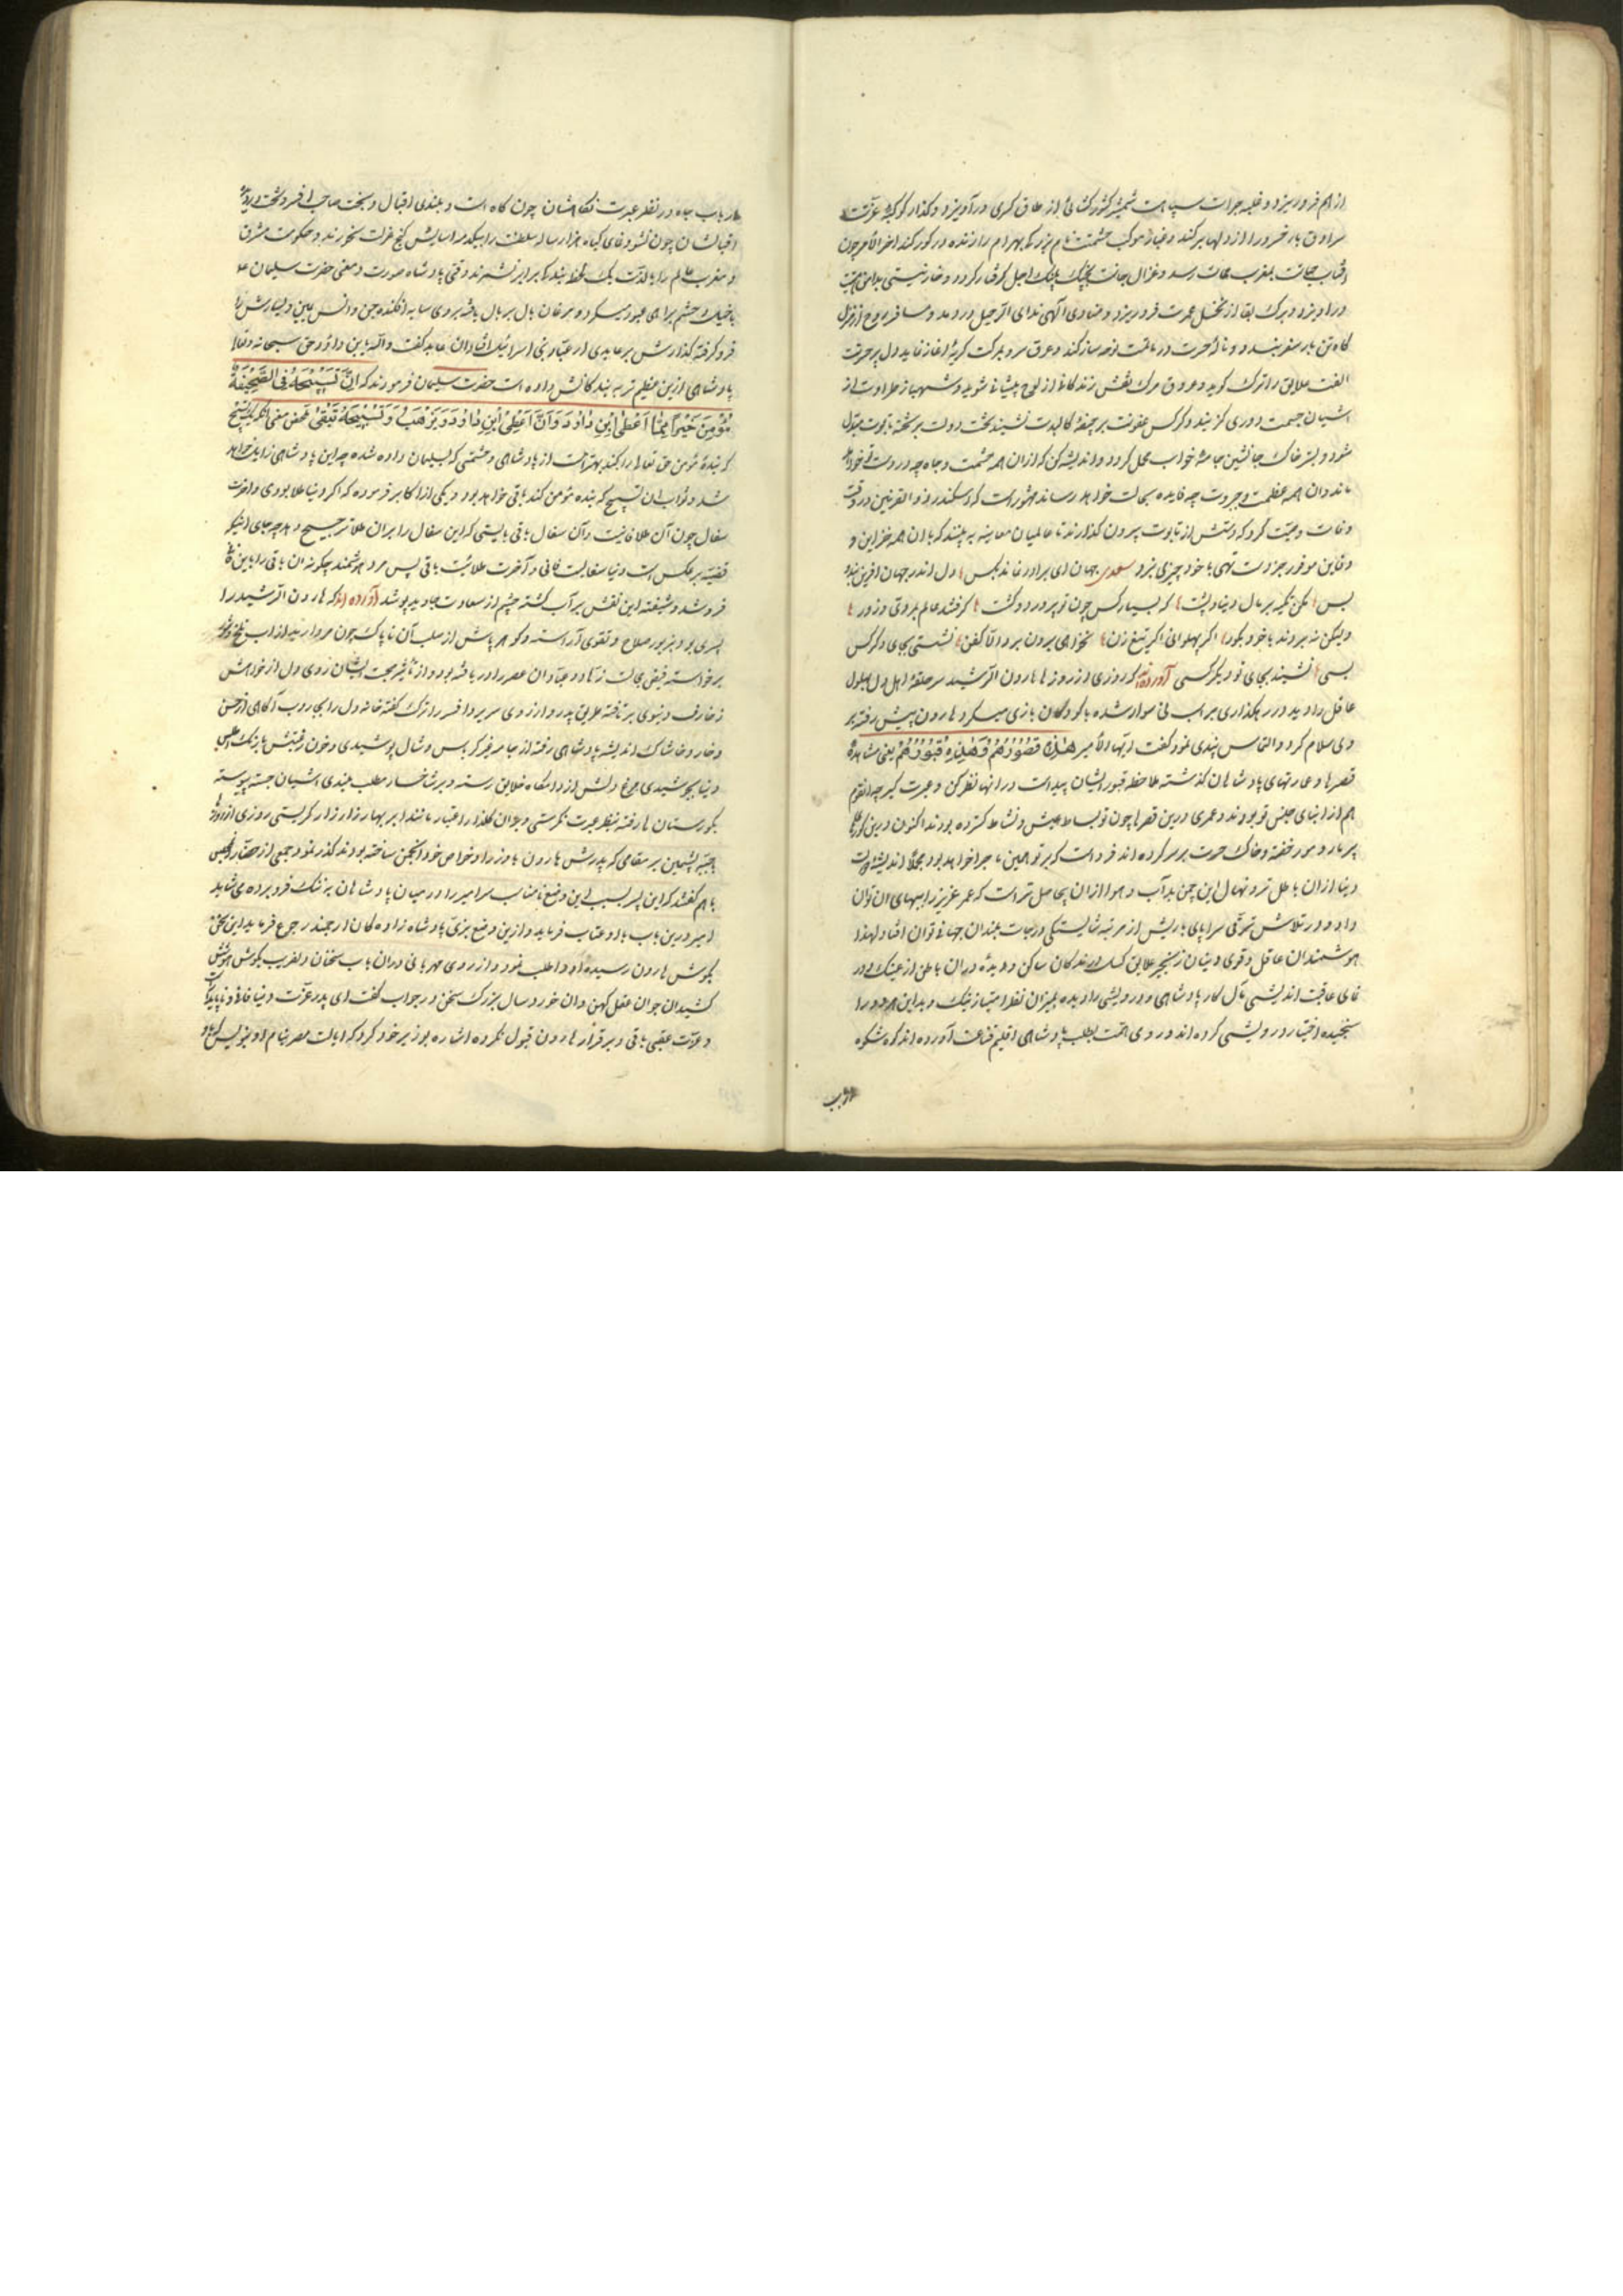 از هم فرو ریزد و غلبه جرات سپاهت شمشیر کشورکشائی از طاق کسری درآویزد و کذار کوکبه عزتت
سرادق بار خسرو را از دلها برکند و غبار موکب حشمتت نام بزرک بهرام را زنده در کور کند اخر الامر چون
افتاب حیاتت بمغرب ممات رسد و غزال جانت بچنک پلنک اجل کرفتار کردد و خار نیستی بدامن
دراویزد و برک بقا از نخل عمرت فرو ریزد و منادی آلهی ندای الرحیل در دهد و مسافر روح از منزل
کاه تن بار سفر بندد و ناله حسرت در ماتمت نوحه ساز کند و عرق سرد بر کت کریه اغاز نماید دل پر حسرت
الفت علایق را ترک کوید و عرق مرک نقش زندکانی از لوح پیشانی شوید و شهباز طراوت از
اشیان جسمت دوری کزیند و کرکس عفونت بر جیفه کالبدت نشیند تخت دولت بر تخته تابوت مبدل
شود و بستر خاک جانشین جامه خواب مخمل کردد و اندیشه کن که ازان همه حشمت و جاه چه در دست تو خواهد
ماند و ان همه عظمت و جبروت چه فایده بحالت خواهد رساند مشهور است که اسکندر ذو القرنین در وقت
وفات وصیت کرد که دستش از تابوت بیرون کذارند تا عالمیان معاینه به بینند که با ان همه خزاین و
دفاین موفور جز دست تهی با خود چیزی نبرد سعدی جهان ای برادر نماند بکس دل اندر جهان افرین بند و
بس مکن تکیه بر مال دنیا و پشت که بسیار کس چون تو پرورد و کشت کرفتند عالم بمردی و زور
ولیکن نه بردند با خود بکور اکر پهلوانی اکر تیغ زن نخواهی برون برد الا کفن نشستی بجای دکر کس
بسی نشیند بجای تو دیکر کسی آورده اند که روزی از روزها هارون الرشید سر حلقه اهل دل بهلول
عاقل را دید در رهکذاری بر اسب نی سوار شده با کودکان بازی میکرد هارون پیش رفته بر
وی سلام کرد و التماس پندی نمود کفت ایها الامیر هٰذِهِ قُصُوْرُهُمْ وَهٰذِهِ قُبُوْرُهُمْ یعنی مشاهده
قصرها و عمارتهای پادشاهان کذشته ملاحظه قبور ایشان پیدا است در انها نظر کن و عبرت کیر چه انقوم
هم از ابنای جنس تو بودند و عمری درین قصرها چون تو بساط عیش و نشاط کسترده بودند اکنون درین کورهای
پر مار و مور خفته و خاک حسرت بر سر کرده اند فردا است که بر تو همین ماجرا خواهد بود مجملا اندیشه دولت
دنیا ازان باطل تر و نهال این چمن بد آب و هوا ازان بی حاصل تر است که عمر عزیز را ببهای ان توان
داد و در تلاش ترقی سراپای باریش از مرتبه شایستکی درجات بلند ان جهانی توان افتاد لهذا
هوشمندان عاقل و قوی دینان زنجیر علایق کسل ارندکان ساکن و دیده وران باطن از عینک دور
نمای عاقبت اندیشی مآل کار پادشاهی و درویشی را دیده بمیزان نظر امتیاز نیک و بد این هر دو را
سنجیده اختیار درویشی کرده اند و روی همت بطلب پادشاهی اقلیم قناعت آورده اند کوه شکوه
ارباب
ارباب جاه در نظر عبرت نکاهشان چون کاه است و بلندی اقبال و بخت صاحب افسر و تخت در دیده
اقبالشان چون نشو و نمای کیاه هزار ساله سلطنت را بیکدم اسایش کنج عزلت نخرند و حکومت مشرق
و مغرب عالم را با لذت یک لحظه بندکی برابر نشمرند وقتی پادشاه صورت و معنی حضرت سلیمان ع
با خیل و حشم براهی عبور میکرد و مرغان بال بر بال بافته بر وی سایه افکنده جن و انس یمین و یسارش را
فرو کرفته کذارش بر عابدی از عباد بنی اسرائیل افتاد ان عابد کفت والله یابن داود حق سبحانه وتعالی
پادشاهی ازین عظیم تر به بندکانش نداده است حضرت سلیمان فرمودند که اِنَّ تَسْبِیْحَةً فِی الصَّحِیْفَةِ
مُؤْمِنٍ خَیْراً مِمَّا اَعْطیٰ اِبْنِ دٰاوُدَ وَاَنَّ اَعْطیٰ اِبْنِ دٰاوُدَ یَذْهَبُ وَ تَسْبِیْحَةُ تَبْقیٰ محض معنی انکه یک تسبیح
که بنده مؤمن حق تعالی را کند بهتر است از پادشاهی و حشمتی که بسلیمان داده شده چه این پادشاهی زایل خواهد
شد و ثواب ان تسبیح که بنده مؤمن کند باقی خواهد بود و یکی از اکابر فرموده که اکر دنیا طلا بودی و اخرت
سفال چون آن طلا فانیست و آن سفال باقی بایستی که این سفال را بر ان طلا ترجیح دهد چه جای اینکه
قضیه بر عکس است و دنیا سفالیست فانی و آخرت طلائیست باقی پس مرد هوشمند چکونه ان باقی را باین فانی
فروشد و شیفته این نقش بر آب کشته چشم از سعادت جاوید پوشد آورده اند که هارون الرشید را
پسری بود بزیور صلاح و تقوی آراسته و کوهر پاش از صلب آن ناپاک چون مروارید از اب تلخ و شور
برخواسته فیض مجالست زهاد و عباد ان عصر را دریافته بود و از تأثیر صحبت ایشان روی دل از خواهش
زخارف دنیوی برتافته طریق پدر و ارزوی سریر و افسر را ترک کفته خانه دل را بجاروب آکاهی از خس
و خار و خاشاک اندیشه پادشاهی رفته از جامه بغیر کرباس و شال پوشیدی و خون رغبتش با رنک اطلس
دنیا نجوشیدی مرغ دلش از دامکاه خلایق رسته و بر شاخسار مطلب بلندی اشیان جسته پیوسته
بکورستان ها رفته بنظر عبرت نکرستی و بران کلذار اعتبار مانند ابر بهار زار زار کریستی روزی از روزها
با جبه پشمین بر مقامی که پدرش هارون با وزرا و خواص خود انجمن ساخته بودند کذر نمود جمعی از حضار مجلس
باهم کفتند که این پسر بسبب این وضع نامناسب سر امیر را در میان پادشاهان به ننک فرو برده می شاید
امیر درین باب با او عتاب فرماید و ازین وضع بزی پادشاه زاده کان ارجمند رجوع فرماید این سخن
بکوش هارون رسیده او را طلب نمود و از روی مهربانی دران باب سخنان دلفریب بکوش هوشش
کشید ان جوان عقل کهن و ان خورد سال بزرک سخن در جواب کفت ای پدر عزت دنیا فانی و ناپایدار است
و عزت عقبی باقی و برقرار هارون قبول نکرده اشاره بوزیر خود کرد که ایالت مصر بنام او بنویس